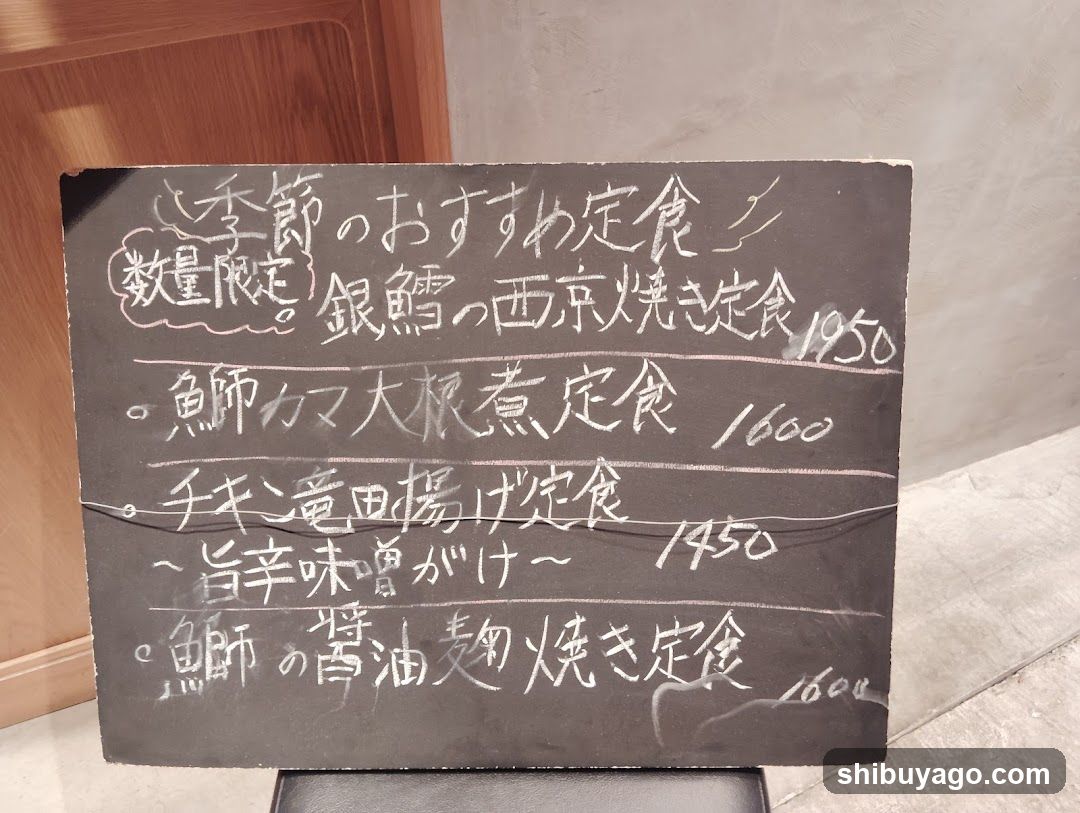 季節のおすすめ定食
数量限定
銀鱈の西京焼き定食 1950
鰤カマ大根煮定食 1600
チキン竜田揚げ定食
～旨辛味噌がけ～ 1450
鰤の醤油麹焼き定食 1600
shibuyago.com